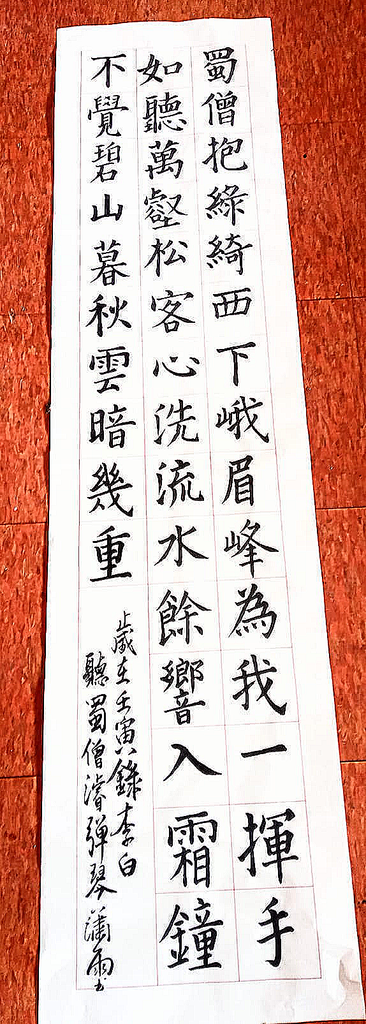 蜀僧抱綠綺西下峨眉峰為我一揮手
如聽萬壑松客心洗流水餘響入霜鐘
不覺碧山暮秋雲暗幾重
歲在壬寅錄李白
聽蜀僧濬彈琴蕭雨書